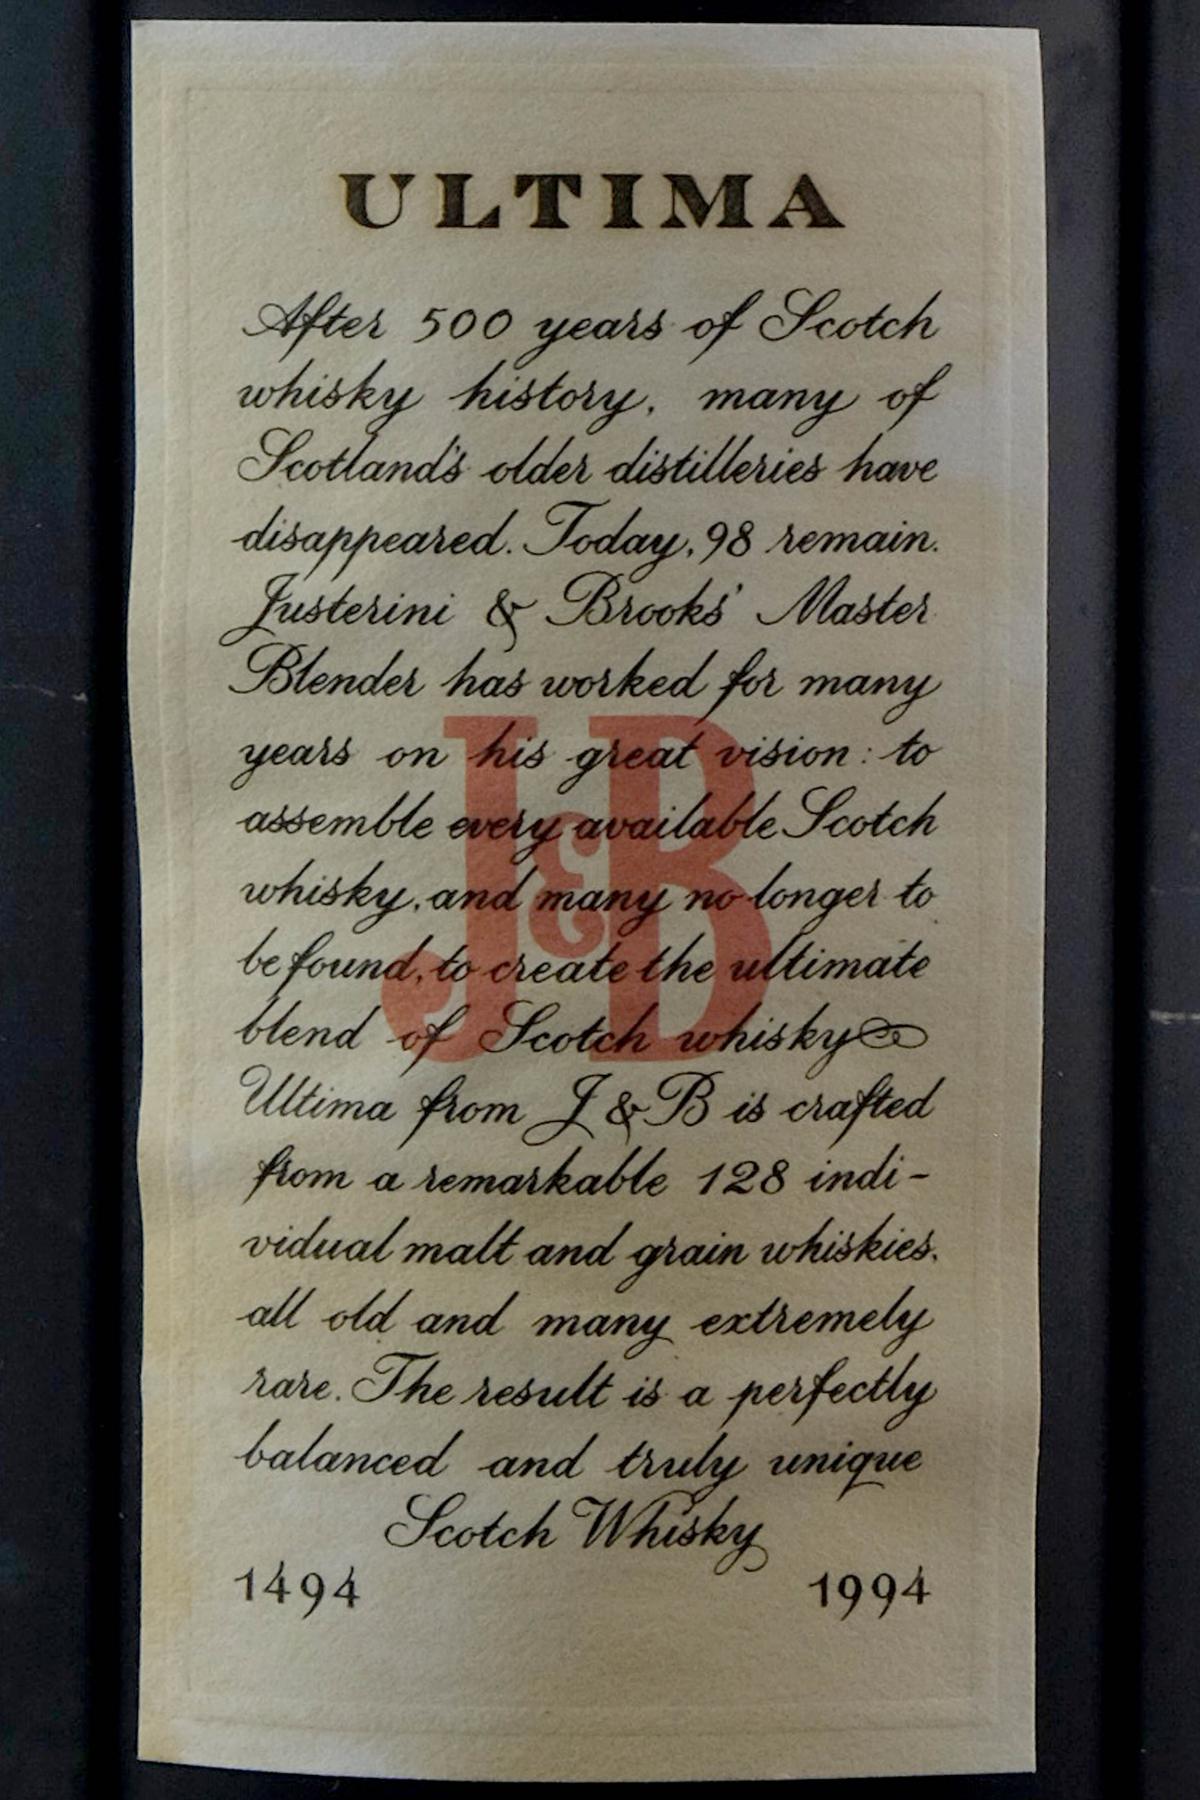 ULTIMA
After 500 years of Scotch
whisky history, many of
Scotland's older distilleries have
disappeared. Today, 98 remain.
Justerini & Brooks' Master
Blender has worked for many
years on his great vision: to
assemble every available Scotch
whisky, and many no longer to
be found, to create the ultimate
blend of Scotch whisky
Ultima from J & B is crafted
from a remarkable 128 indi-
vidual malt and grain whiskies,
all old and many extremely
rare. The result is a perfectly
balanced and truly unique
Scotch Whisky
1494 1994
J&B